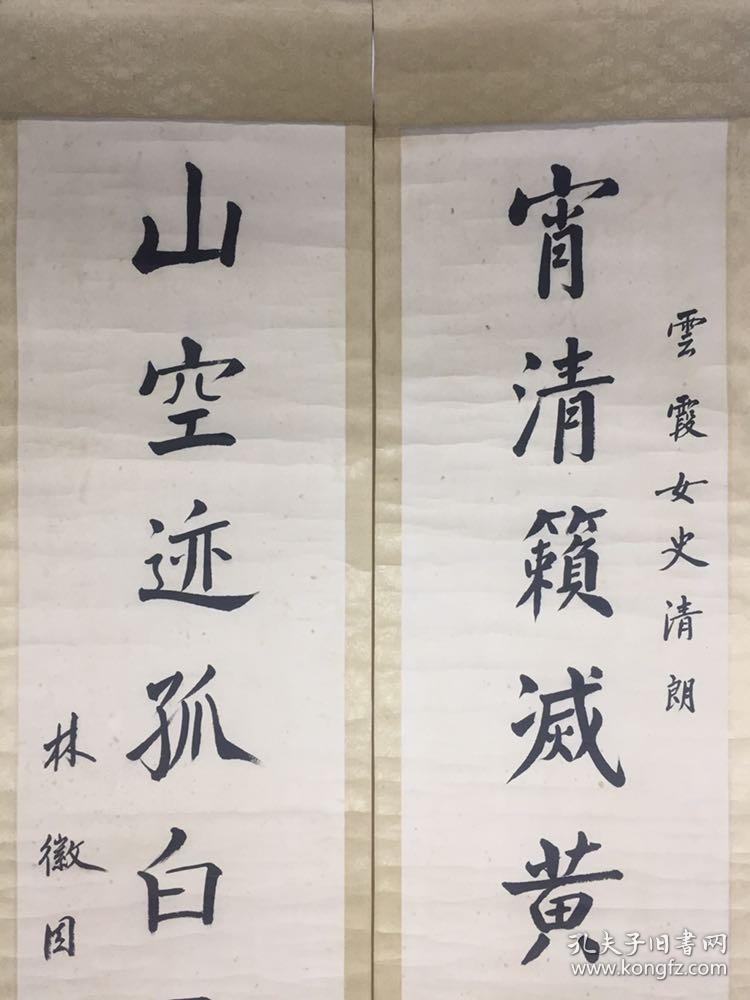 雲霞女史清朗
宵清籟滅黄
山空迹孤白
林徽因
孔夫子旧書网
www.kongfz.com